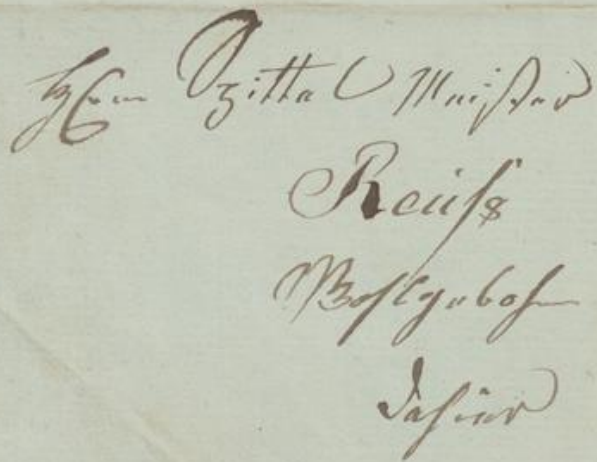 Herrn Spittal Meister
Reuß
Wohlgebohrn
dahier